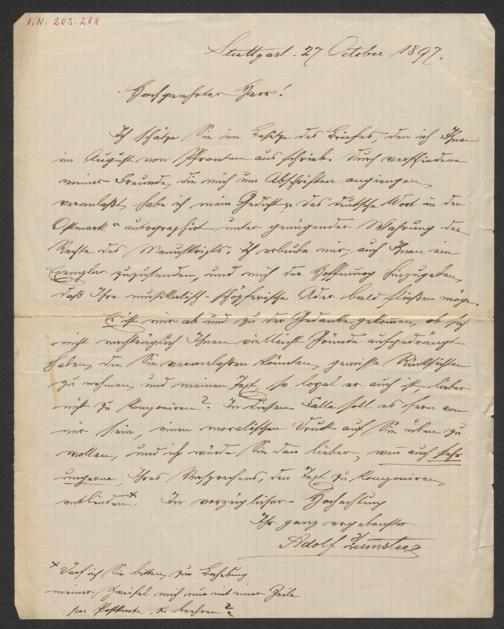 I.N. 203.288
Stuttgart. 27 October 1897.
Hochgeehrter Herr!
Ich schätze Sie im Besitze des Briefes, den ich Ihnen
im August von Pfronten aus schrieb. Durch verschiedene
meiner Freunde, die mich um Abschriften angiengen,
veranlaßt, habe ich mein Gedicht „Das deutsche Wort in der
Ostmark“ autographirt unter genügender Wahrung der
Rechte des Manuskripts. Ich erlaube mir, auch Ihnen ein
Exemplar zuzusenden, und mich der Hoffnung hinzugeben,
daß Ihre musikalisch-schöpferische Ader bald fließen möge.
Es ist mir ab und zu der Gedanke gekommen, ob sich
nicht nachträglich Ihnen vielleicht Gründe aufgedrängt
haben, die Sie veranlassen könnten, gewisse Rücksichten
zu nehmen, und meinen Text, so loyal er auch ist, lieber
nicht zu komponiren? In diesem Falle soll es fern von
mir sein, einen moralischen Druck auf Sie üben zu
wollen, und ich würde Sie dann lieber, wenn auch sehr
ungerne, Ihres Versprechens, den Text zu komponiren,
entbinden.* In vorzüglicher Hochachtung
Ihr ganz ergebenster
Adolf
* Darf ich Sie bitten, zur Behebung
meiner Zweifel mich nur mit einer Zeile
per Postkarte zu beehren?